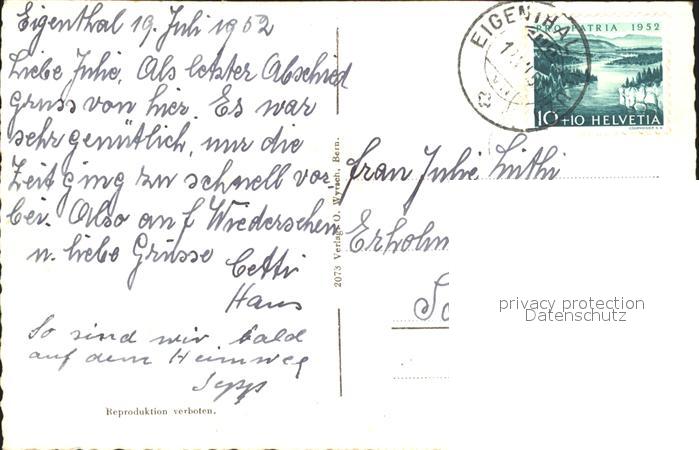 Eigenthal 19. Juli 1952
Liebe Julie. Als letzter Abschied
gruss von hier. Es war
sehr gemütlich, nur die
Zeit ging zu schnell vor-
bei. Also auf Wiedersehen
u. liebe Grüsse
Hans
So sind wir bald
auf dem Heimweg
Sepp
Reproduktion verboten.
2073 Verlag O. Wyrsch, Bern.
EIGENTHAL
PRO PATRIA 1952
10+10 HELVETIA
Frau Julie Lüthi
privacy protection
Datenschutz